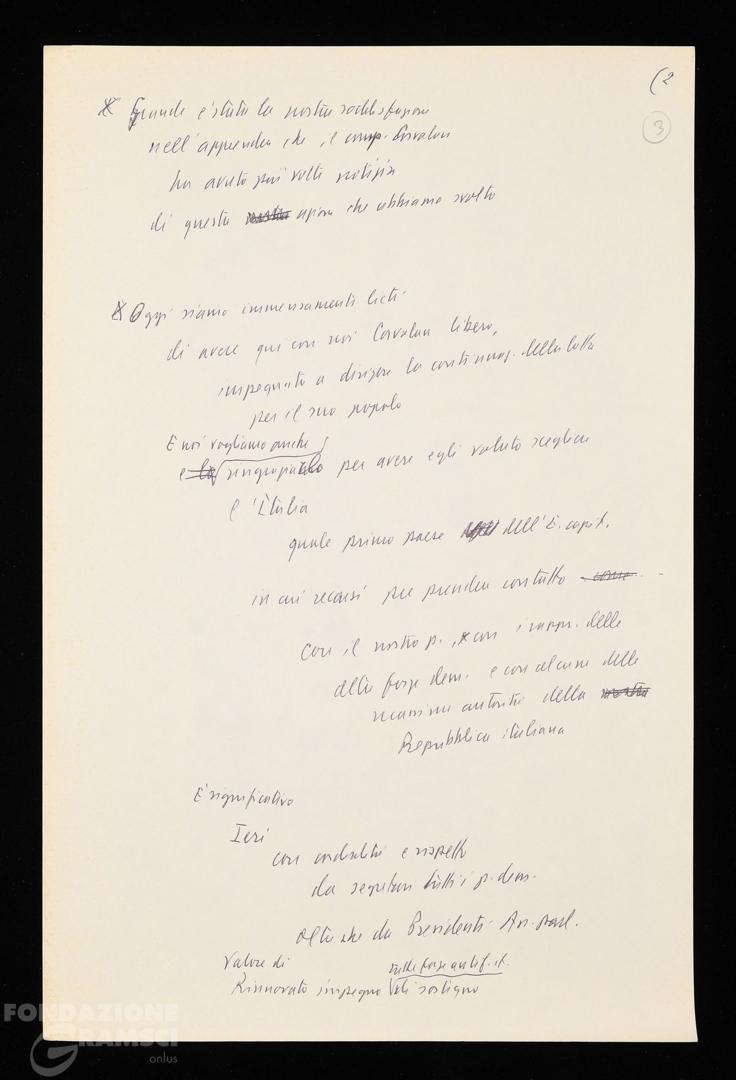 (2
3
Grande è stata la nostra soddisfazione
nell'apprendere che il comp. Corvalan
ha avuto più volte notizia
di questa nostra azione che abbiamo svolto
Oggi siamo immensamente lieti
di avere qui con noi Corvalan libero,
impegnato a dirigere la continuaz. della lotta
per il suo popolo
E noi vogliamo anche
e la ringraziarlo per avere egli voluto scegliere
l'Italia
quale primo paese dell'E. capit.
in cui recarsi per prendere contatto come
con il nostro p., con i rappr. delle
altre forze dem. e con alcune delle
massime autorità della nostra
Repubblica italiana
È significativo
Ieri
con cordialità e rispetto
da segretari tutti i p. dem.
oltre che da Presidenti Ass. parl.
Valore di
delle forze antif. it.
Rinnovato impegno di sostegno
FONDAZIONE
GRAMSCI
onlus